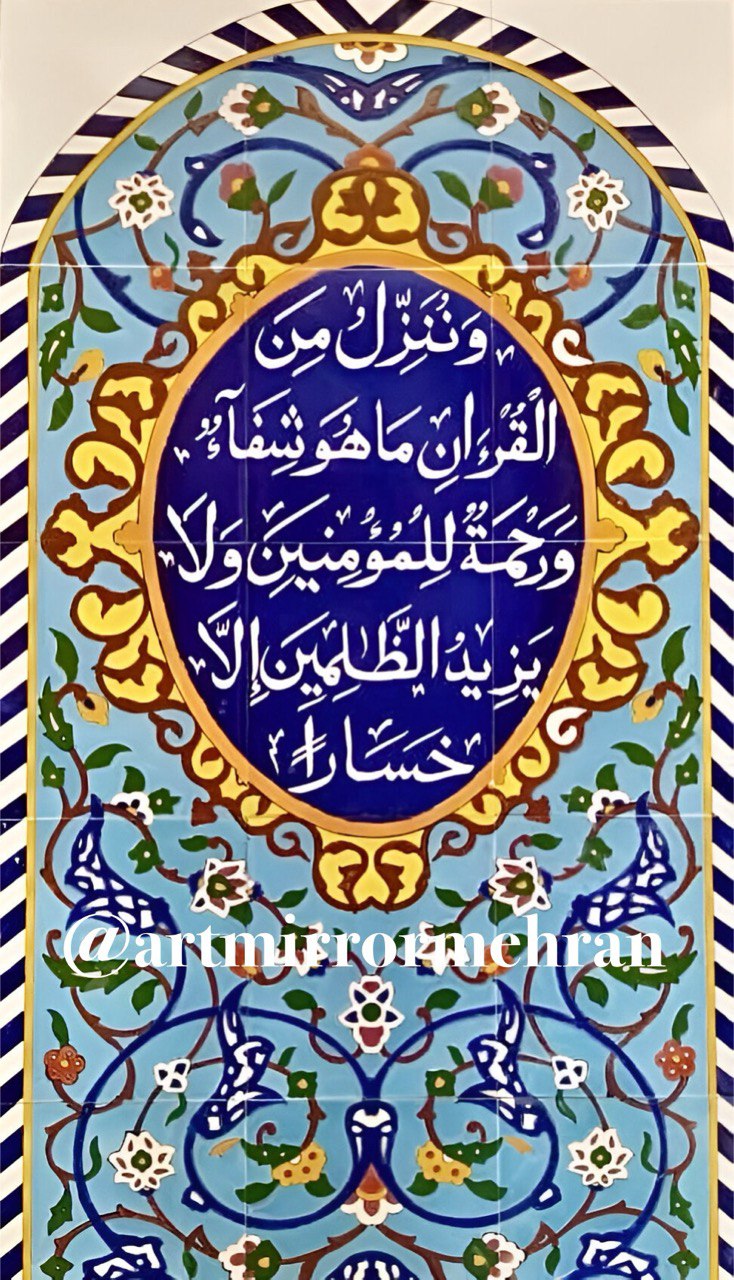 وَنُنَزِّلُ مِنَ
الْقُرْءَانِ مَا هُوَ شِفَآءٌ
وَرَحْمَةٌ لِلْمُؤْمِنِينَ وَلَا
يَزِيدُ الظَّٰلِمِينَ إِلَّا
خَسَارًا
@artmirrormehran